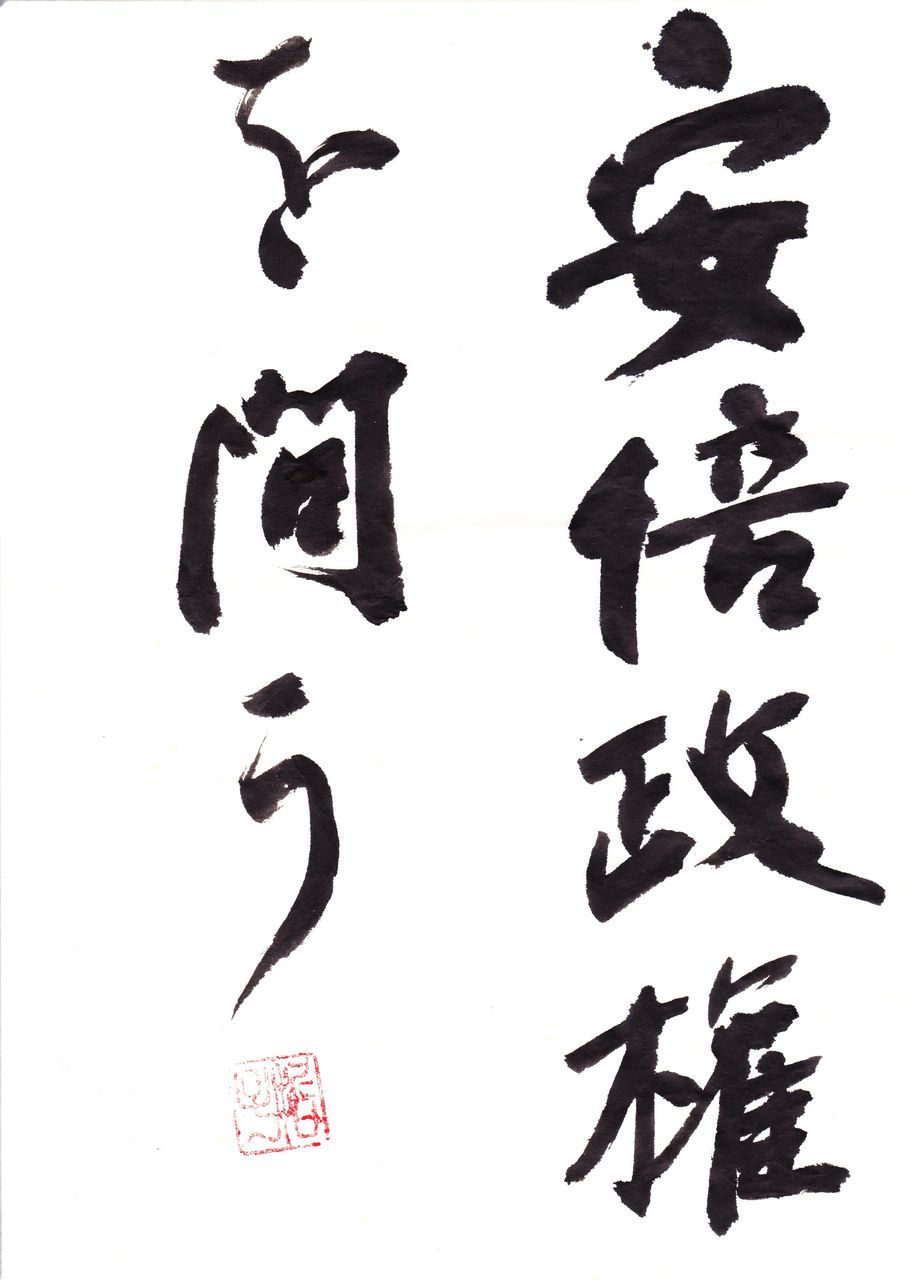 安倍政権
を問う